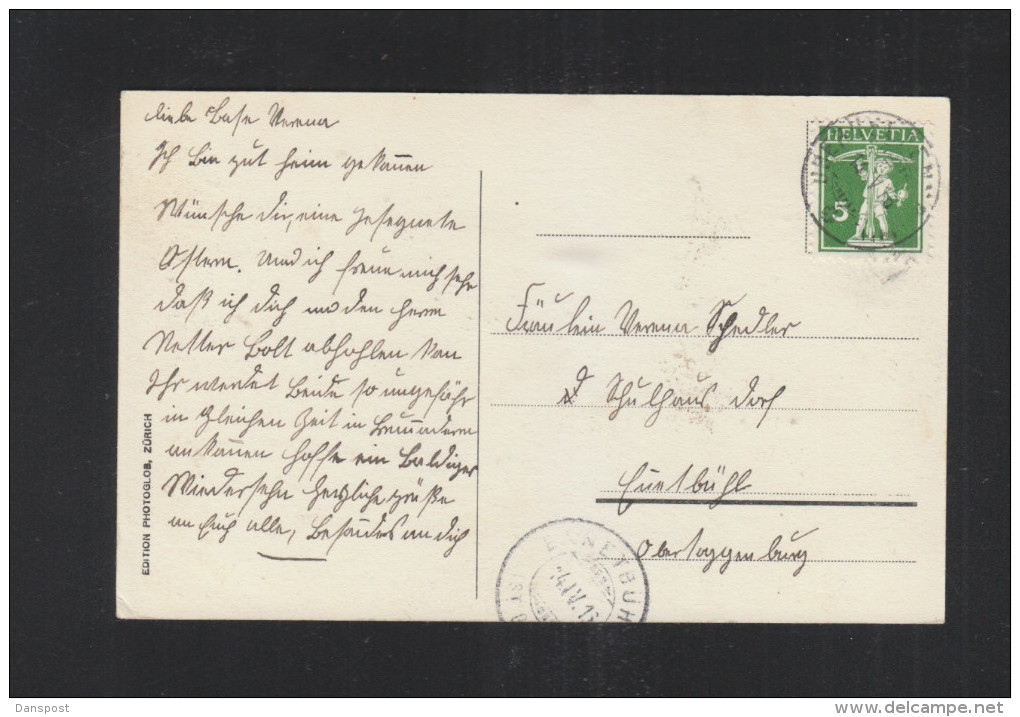 Liebe Base Verena
Ich bin gut heim gekomen
Wünsche dir, eine gesegnete
Ostern. Und ich freue mich sehr
daß ich dich und den Herrn
Vetter Bolt abhohlen kan
Ihr werdet Beide so ungefähr
in gleichen Zeit in
ankomen hoffe ein Baldiges
Wiedersehn herzliche grüße
an Euch alle, Besonders an dich
EDITION PHOTOGLOB, ZÜRICH
HELVETIA
5
Fräulein Verena Schedler
Schulhaus Dorf
Obertoggenburg
Danspost
delcampe.net